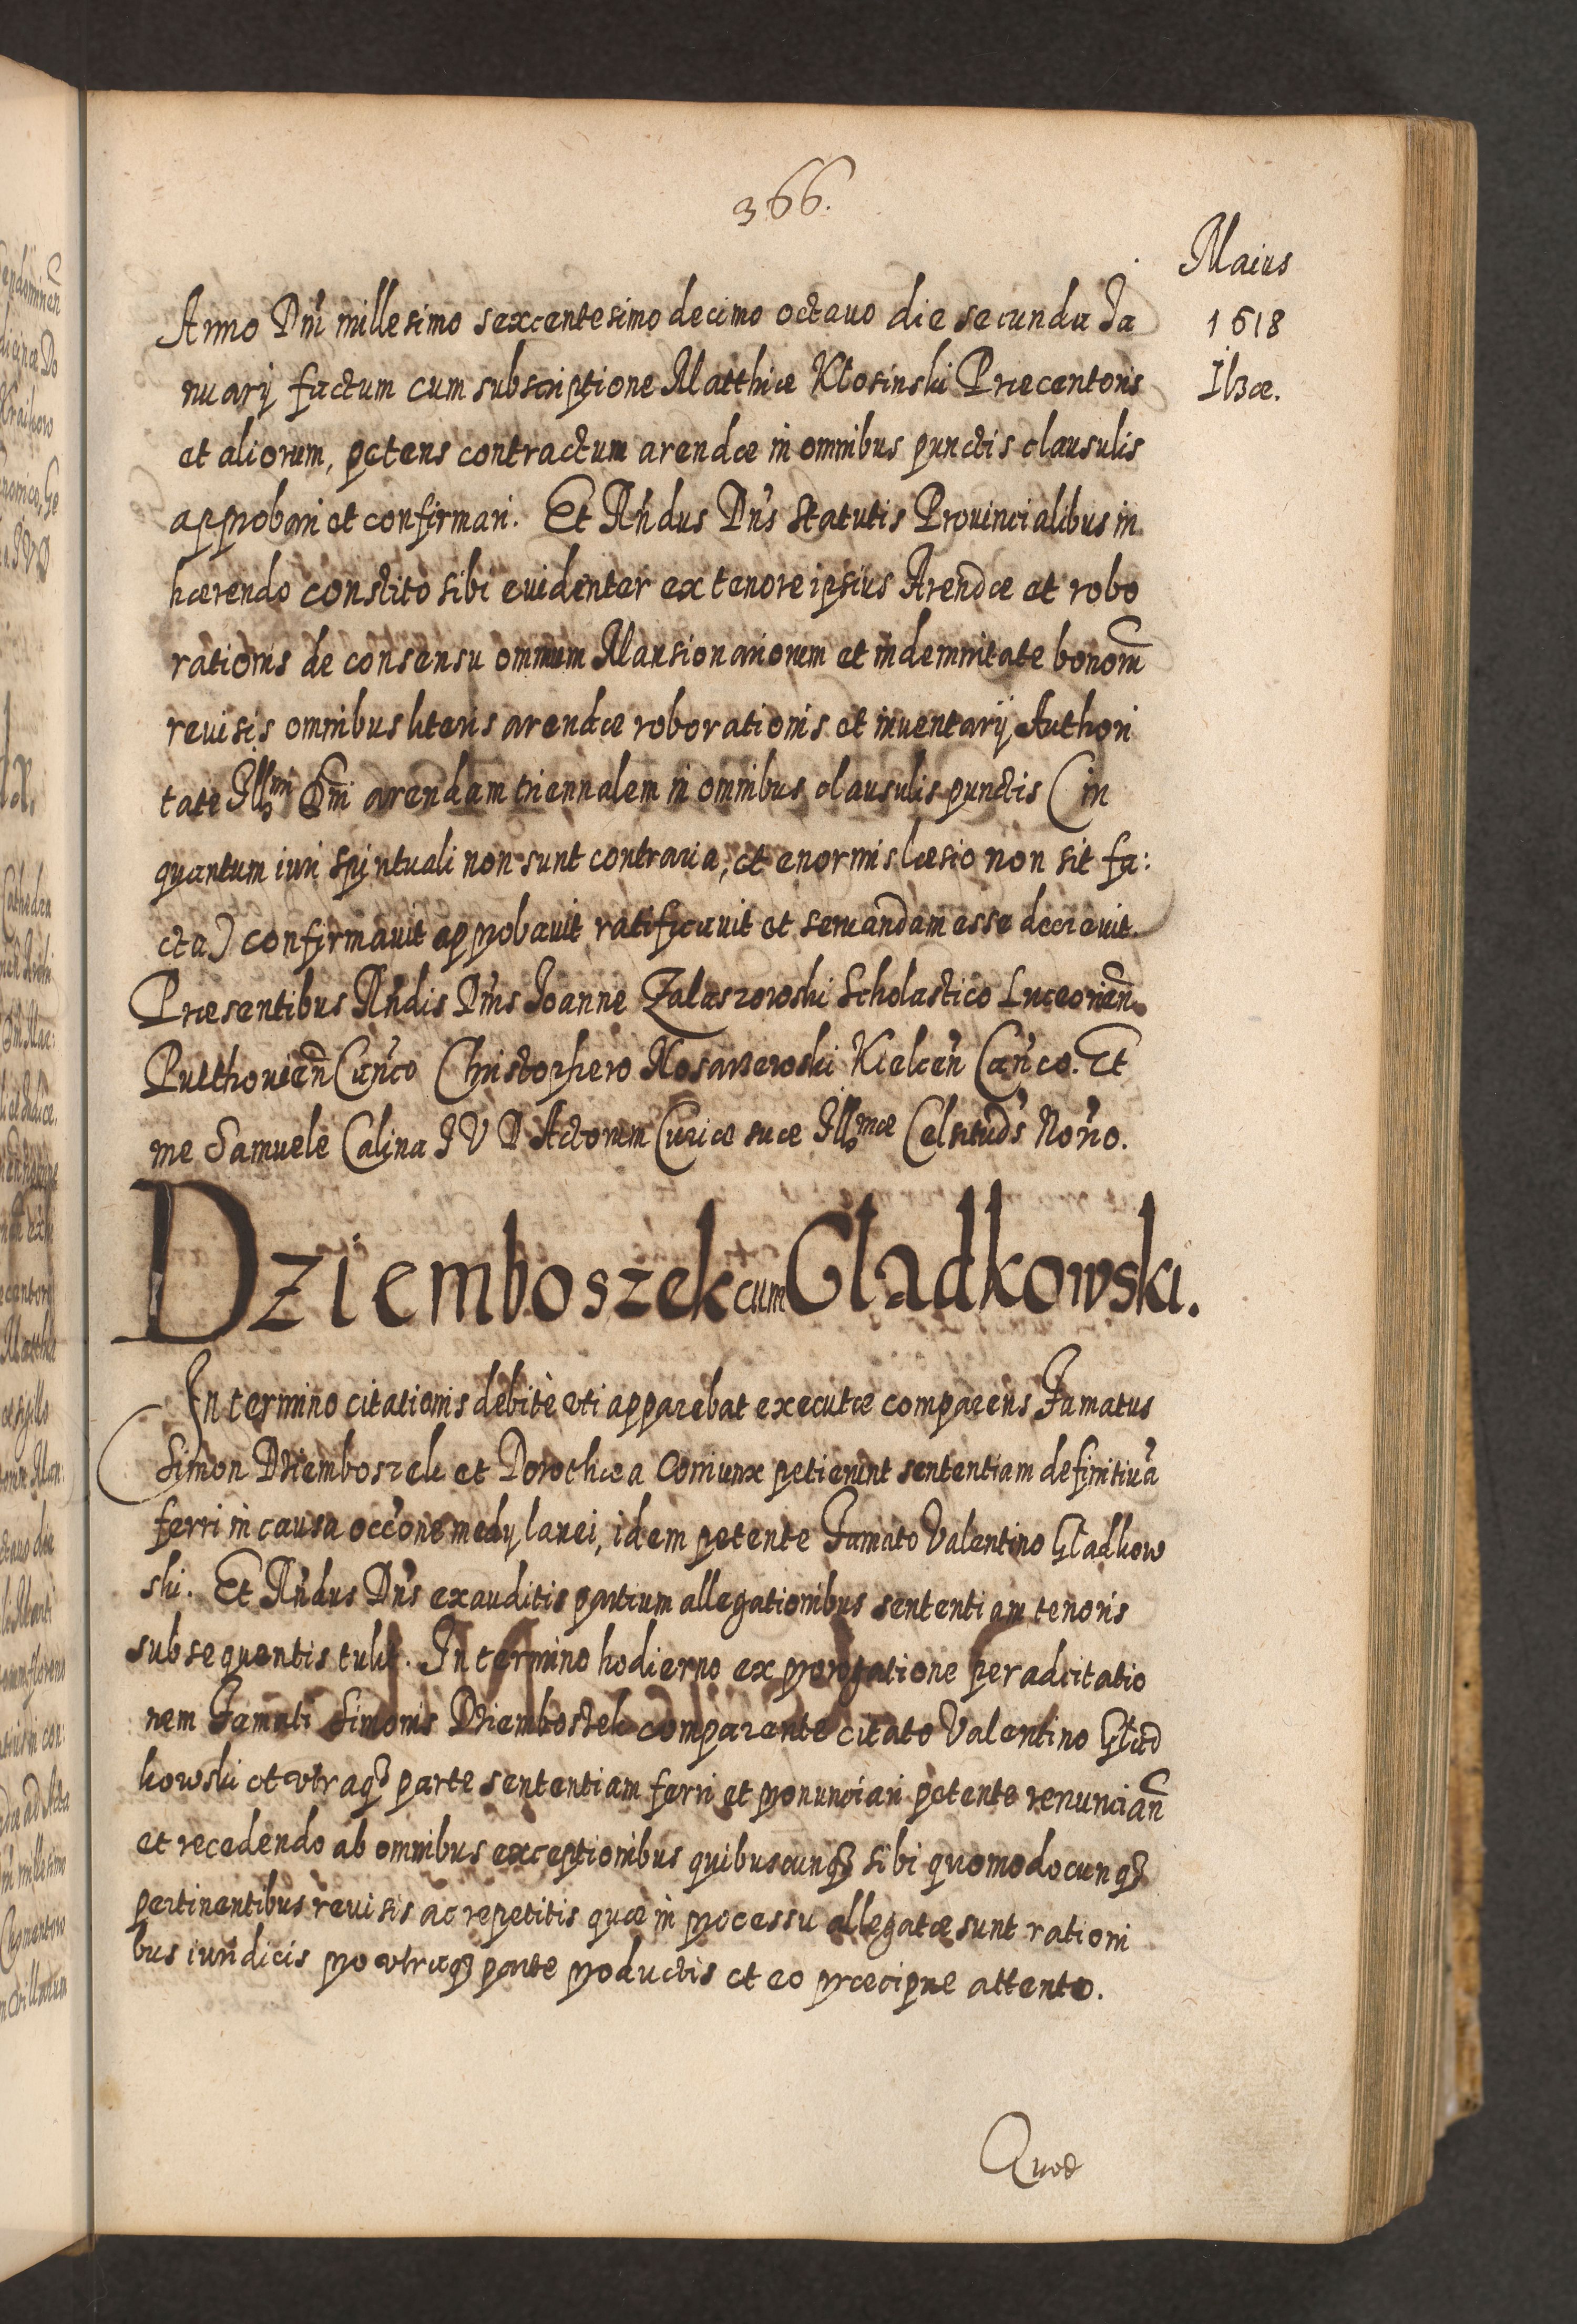 366.
Maius
1618
Ilzæ.
Anno Dni millesimo sexcentesimo decimo octauo die secunda Ja
nuarij factum cum subscriptione Matthiæ Klosinski Præcentoris
et aliorum, petens contractum arendæ in omnibus punctis clausulis
approbari et confirmari. Et Rndus Dns Statutis Prouincialibus in
hærendo constito sibi euidenter ex tenore ipsius Arendæ et robo
rationis de consensu omnium Mansionariorum et indemnitate bonorũ
reuisis omnibus literis arendæ roborationis et inuentarij Authori
tate Illmi Dni arendam triennalem in omnibus clausulis punctis (in
quantum iuri spirituali non sunt contraria, et enormis læsio non sit fa:
cta) confirmauit approbauit ratificauit et seruandam esse decreuit.
Præsentibus Rndis Dnis Joanne Zalaszowski Scholastico Luceorien̄.
Pulthouien̄ Can̄co Christophero Kosarzewski Kielcen̄ Can̄co. Et
me Samuele Calina J V D Actorum Curiæ suæ Illmæ Celsitud̄s No̅rio.
Dziemboszek cum Gladkowski.
In termino citationis debitè vti apparebat executæ comparens Famatus
Simon Dziemboszek et Dorothæa Coniunx petierunt sententiam definitiuā
ferri in causa occ̄one medij lanei, idem petente Famato Valentino Gladkow
ski. Et Rndus Dns exauditis partium allegationibus sententiam tenoris
subsequentis tulit. In termino hodierno ex prorogatione per adcitatio
nem Famati Simonis Dziemboszek comparente citato Valentino Glad
kowski et vtraq3 parte sententiam ferri et pronunciari petente renuncian̄
et recedendo ab omnibus exceptionibus quibuscunq3 sibi quomodocunq3
pertinentibus reuisis ac repetitis quæ in processu allegatæ sunt rationi
bus iuridicis pro vtraq3 parte productis et eo præcipue attento.
Quod